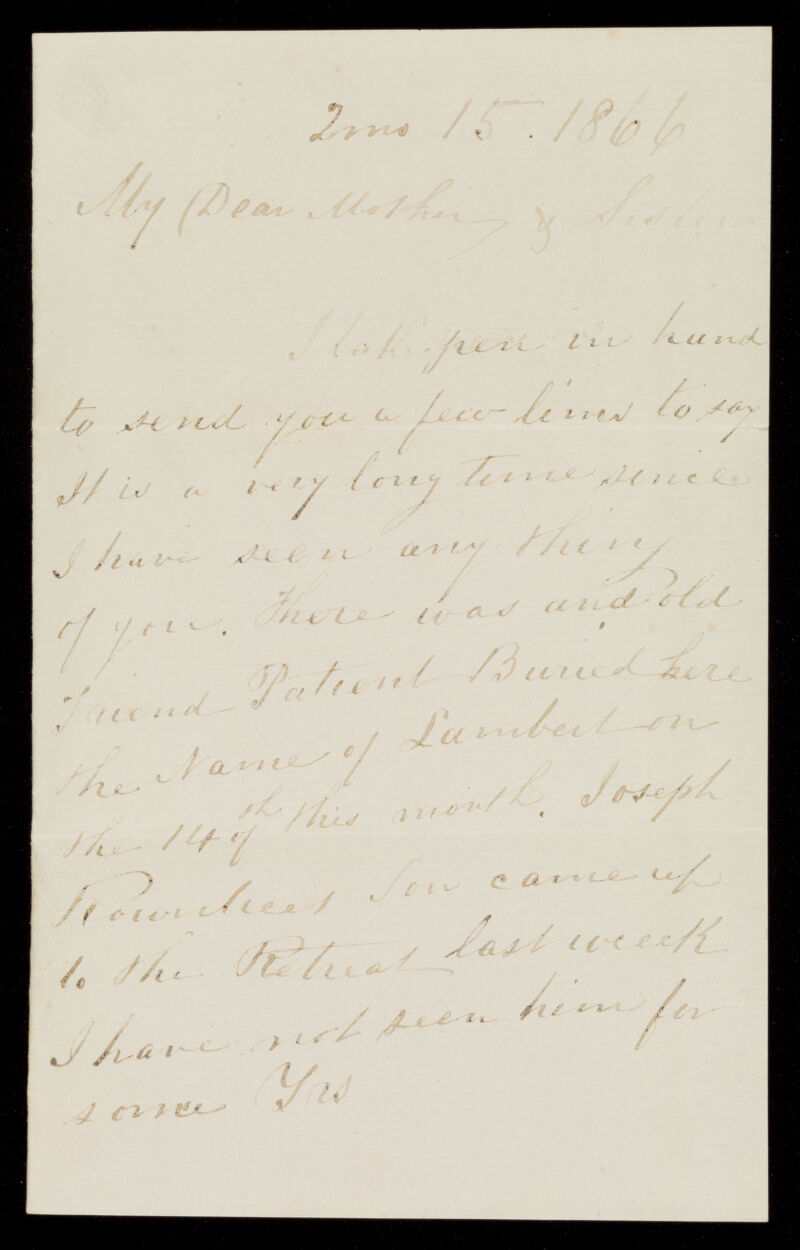 2mo 15. 1866
My Dear Mother & Sister
I take pen in hand
to send you a few lines to say
It is a very long time since
I have seen any thing
of you. There was and old
Friend Patient Buried here
the Name of Lambert on
the 14th of this month. Joseph
Rowntrees Son came up
to the Retreat last weeek
I have not seen him for
some Yrs